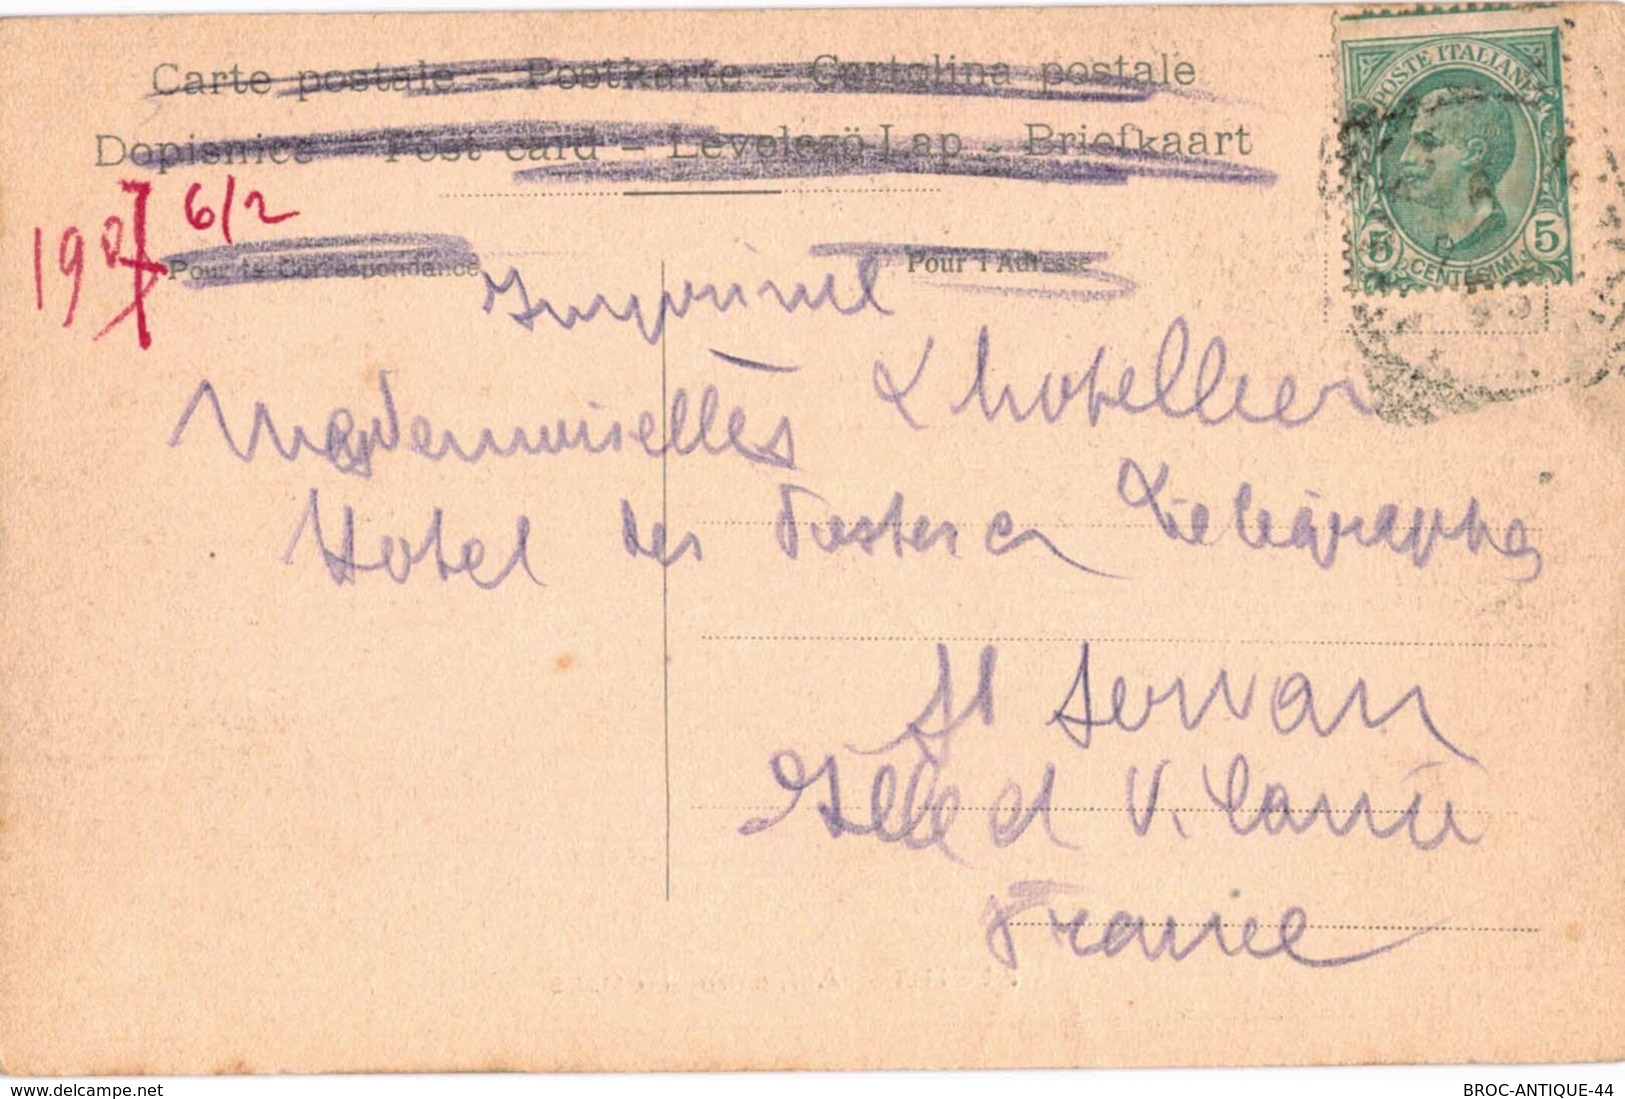 Carte postale – Postkarte – Cartolina postale
Dopisnice – Post card – Levelezö-Lap – Briefkaart
POSTE ITALIANE
5 CENTESIMI 5
6/2
190
Pour la Correspondance
Pour l'Adresse
Imprimé
Mesdemoiselles Lhotellier
Hotel des Postes et Télégraphes
St Servan
Ille et Vilaine
France
www.delcampe.net
BROC-ANTIQUE-44